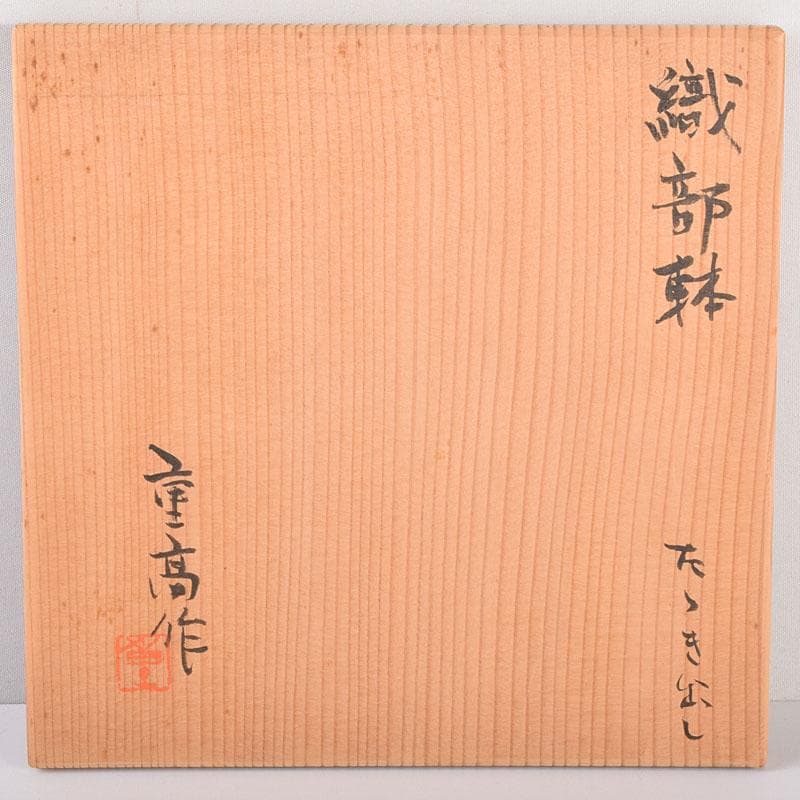 織部鉢
たゝき出し
重高作